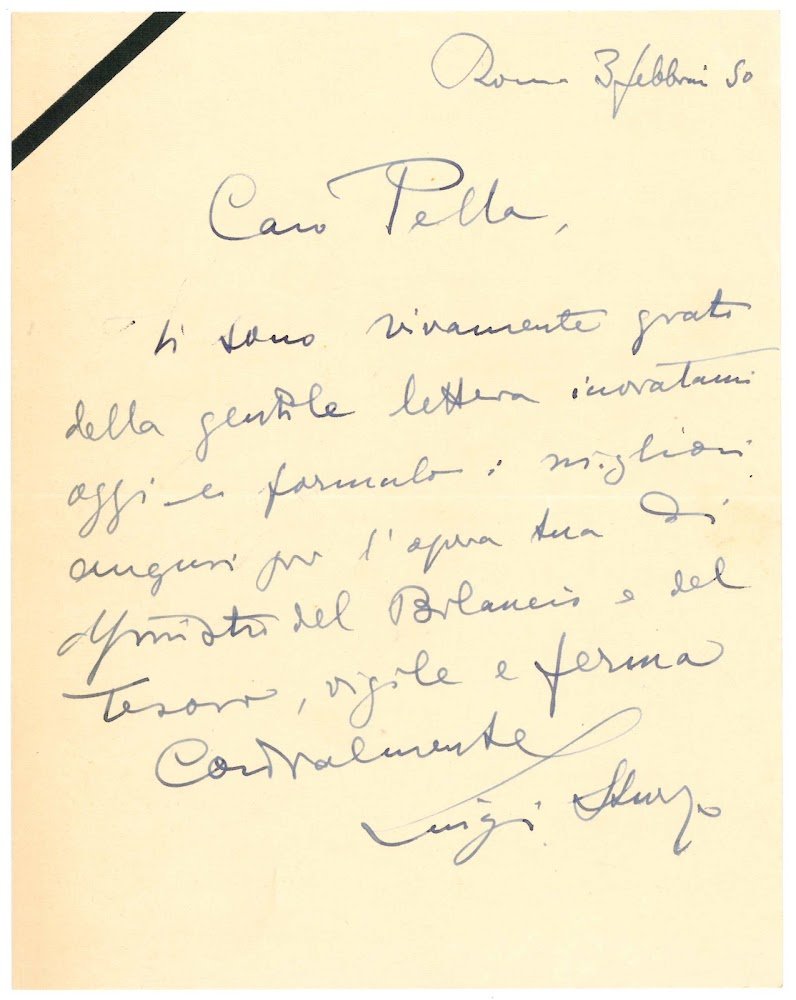 Roma 3 febbrai 50
Caro Pella,
ti sono vivamente grato
della gentile lettera inviatami
oggi e formulo i migliori
auguri per l'opera tua di
Ministro del Bilancio e del
Tesoro, vigile e ferma
Cordialmente
Luigi Sturzo